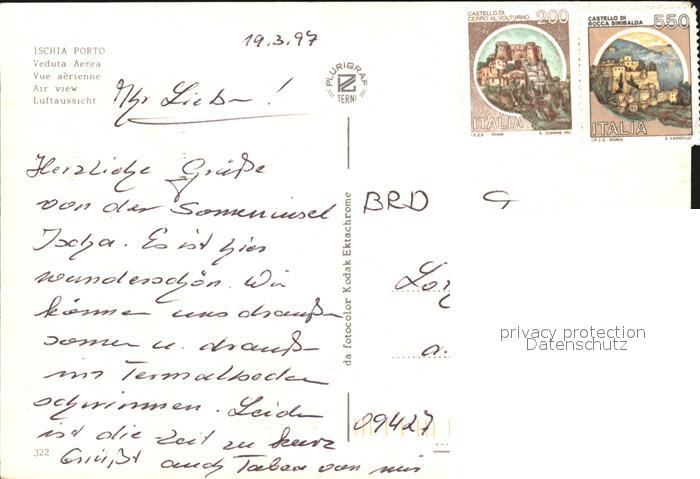 ISCHIA PORTO
Veduta Aerea
Vue aèrienne
Air view
Luftaussicht
19.3.97
PLURIGRAF
TERNI
CASTELLO DI
CERRO AL VOLTURNO
200
ITALIA
I.P.Z.S. - ROMA
CASTELLO DI
ROCCA SINIBALDA
550
ITALIA
I.P.Z.S. - ROMA
Ihr Lieben!
Herzliche Grüße
von der Sonneninsel
Ischa. Es ist hier
wunderschön. Wir
können uns draußen
sonnen u. draußen
im Termalbecken
schwimmen. Leider
ist die Zeit zu kurz
Grüßt auch von mir
322
da fotocolor Kodak Ektachrome
BRD
09427
privacy protection
Datenschutz